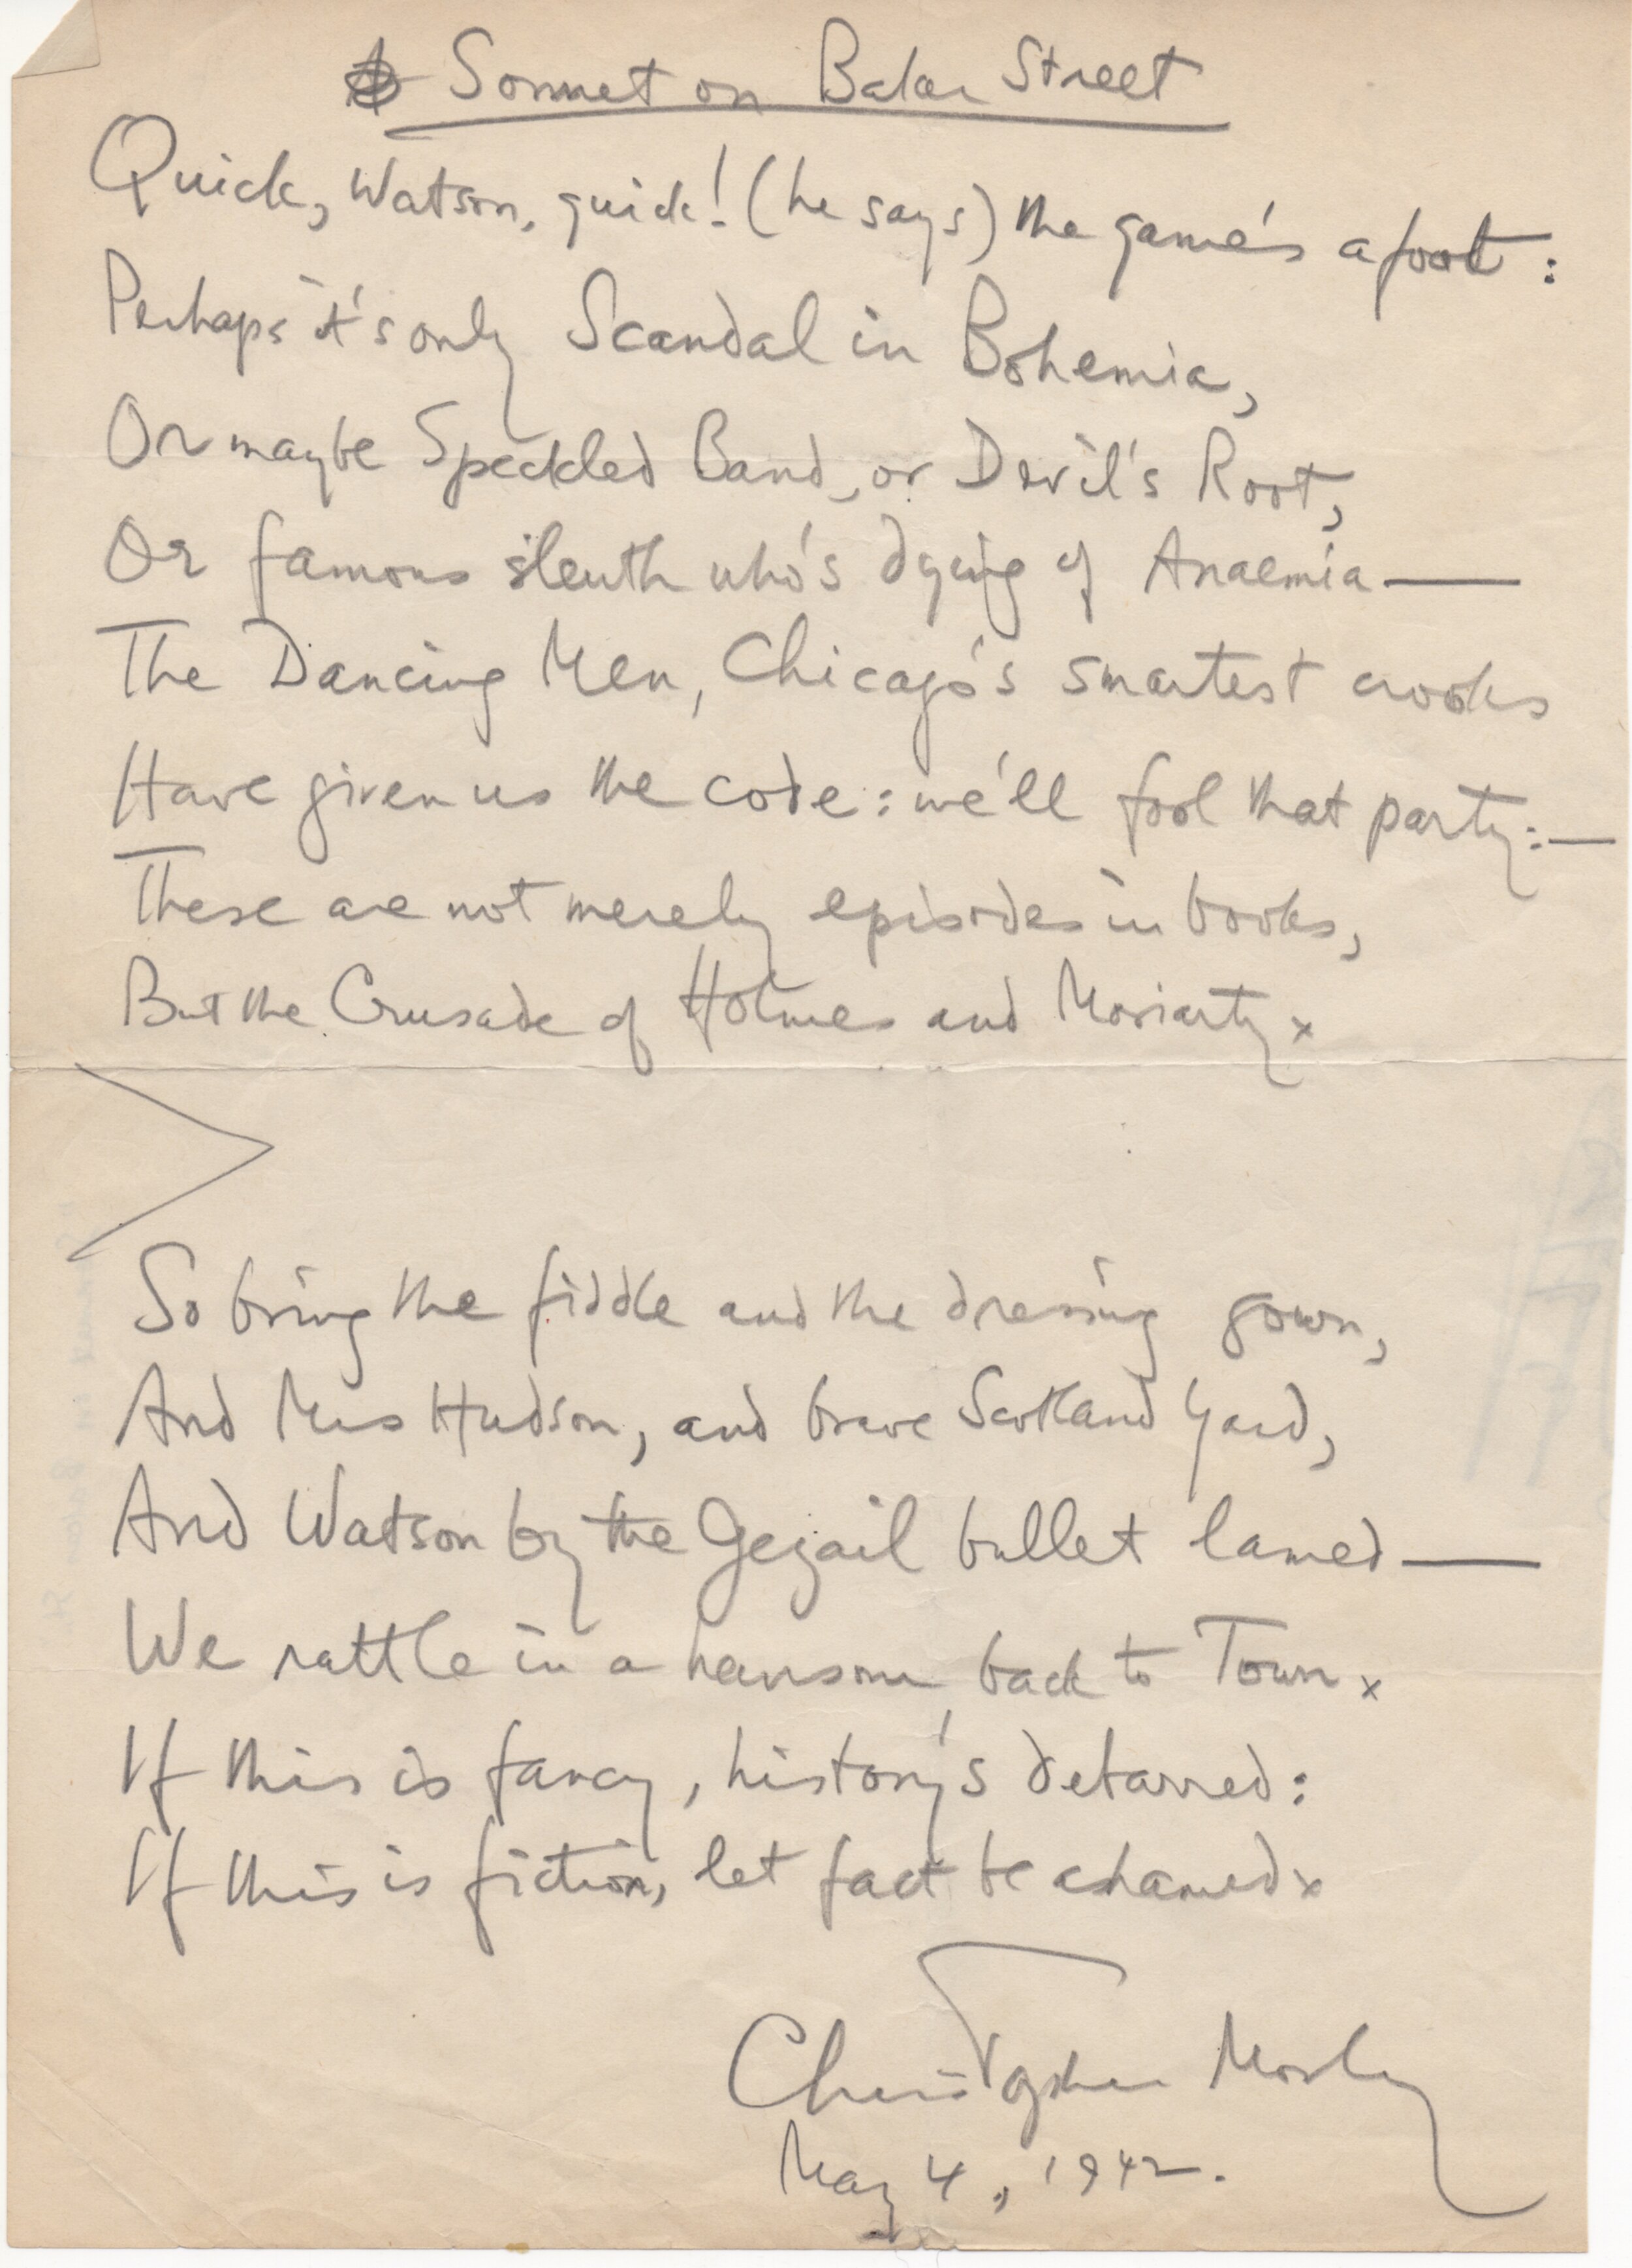 Sonnet on Baker Street
Quick, Watson, quick! (he says) the game's afoot:
Perhaps it's only Scandal in Bohemia,
Or maybe Speckled Band, or Devil's Root,
Or famous sleuth who's dying of Anaemia—
The Dancing Men, Chicago's smartest crooks
Have given us the code: we'll fool that party:—
These are not merely episodes in books,
But the Crusade of Holmes and Moriarty x
So bring the fiddle and the dressing gown,
And Mrs Hudson, and brave Scotland Yard,
And Watson by the Gezail bullet lamed—
We rattle in a hansom, back to Town x
If this is fancy, history's debarred:
If this is fiction, let fact be ashamed x
Christopher Morley
May 4, 1942.